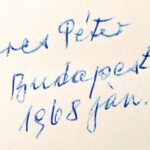 Péter
Budapest
1968 jàn.